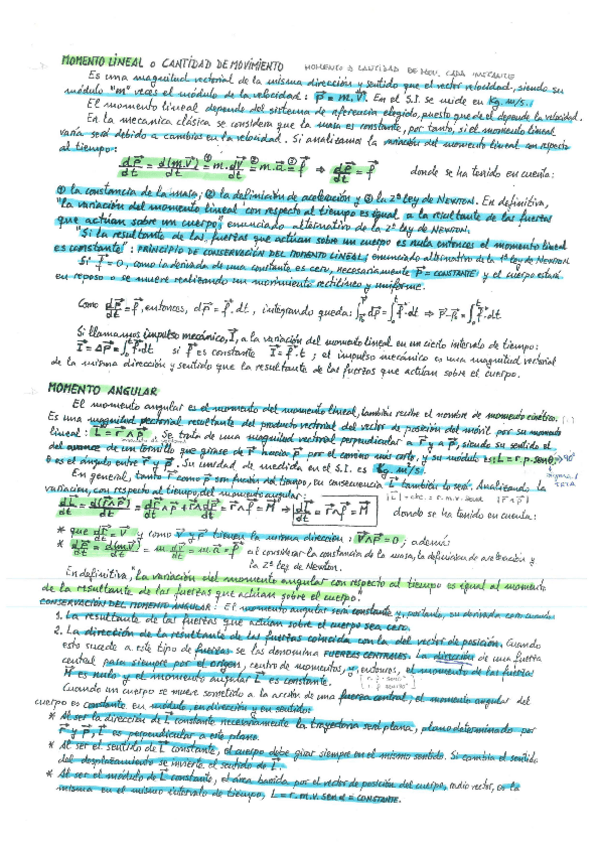 MOMENTO LINEAL o CANTIDAD DE MOVIMIENTO MOMENTO o CANTIDAD DE MOV.
Es una magnitud vectorial de la misma dirección y sentido que el vector velocidad, siendo su
módulo "m" veces el módulo de la velocidad: p⃗ = m.v⃗. En el S.I. se mide en Kg.m/s.
El momento lineal depende del sistema de referencia elegido, puesto que de él depende la velocidad.
En la mecánica clásica se considera que la masa es constante, por tanto, si el momento lineal
varía será debido a cambios en la velocidad. Si analizamos la variación del momento lineal con respecto
al tiempo:
dp⃗/dt = d(m.v⃗)/dt ①= m.dv⃗/dt ②= m.a⃗ ③= f⃗ ⇒ dp⃗/dt = f⃗ donde se ha tenido en cuenta:
① la constancia de la masa, ② la definición de aceleración y ③ la 2ª ley de NEWTON. En definitiva,
"la variación del momento lineal con respecto al tiempo es igual a la resultante de las fuerzas
que actúan sobre un cuerpo" enunciado alternativo de la 2ª ley de NEWTON.
"Si la resultante de las fuerzas que actúan sobre un cuerpo es nula entonces el momento lineal
es constante": PRINCIPIO DE CONSERVACIÓN DEL MOMENTO LINEAL, enunciado alternativo de la 1ª ley de NEWTON
Si f⃗ = 0, como la derivada de una constante es cero, necesariamente p⃗ = CONSTANTE y el cuerpo estará
en reposo o se mueve realizando un movimiento rectilíneo y uniforme.
Como dp⃗/dt = f⃗, entonces, dp⃗ = f⃗.dt, integrando queda: ∫dp⃗ = ∫f⃗.dt ⇒ p⃗-p⃗₀ = ∫f⃗.dt
Si llamamos impulso mecánico, I⃗, a la variación del momento lineal en un cierto intervalo de tiempo:
I⃗ = Δp⃗ = ∫f⃗.dt si f⃗ es constante I⃗ = f⃗.t ; el impulso mecánico es una magnitud vectorial
de la misma dirección y sentido que la resultante de las fuerzas que actúan sobre el cuerpo.
MOMENTO ANGULAR
El momento angular es el momento del momento lineal, también recibe el nombre de momento cinético.
Es una magnitud vectorial resultante del producto vectorial del vector de posición del móvil por su momento
lineal: L⃗ = r⃗ ∧ p⃗. Se trata de una magnitud vectorial perpendicular a r⃗ y a p⃗, siendo su sentido el
del avance de un tornillo que girase de r⃗ hacia p⃗ por el camino más corto, y su módulo es: L = r.p.senθ, 90°
θ es el ángulo entre r⃗ y p⃗. Su unidad de medida en el S.I. es Kg.m²/s.
En general, tanto r⃗ como p⃗ son función del tiempo, en consecuencia L⃗ también lo será. Analizando la
variación, con respecto al tiempo, del momento angular:
dL⃗/dt = d(r⃗∧p⃗)/dt = dr⃗/dt ∧ p⃗ + r⃗ ∧ dp⃗/dt = r⃗∧f⃗ = M⃗ ⇒ dL⃗/dt = r⃗∧f⃗ = M⃗ donde se ha tenido en cuenta:
* que dr⃗/dt = v⃗ y como v⃗ y p⃗ tienen la misma dirección: v⃗∧p⃗ = 0; además:
* dp⃗/dt = d(m.v⃗)/dt = m.dv⃗/dt = m.a⃗ = f⃗ al considerar la constancia de la masa, la definición de aceleración y
la 2ª ley de NEWTON.
En definitiva, "La variación del momento angular con respecto al tiempo es igual al momento
de la resultante de las fuerzas que actúan sobre el cuerpo."
CONSERVACIÓN DEL MOMENTO ANGULAR: El momento angular será constante y, por tanto, su derivada cero cuando:
1. La resultante de las fuerzas que actúan sobre el cuerpo sea cero.
2. La dirección de la resultante de las fuerzas coincida con la del vector de posición. Cuando
esto sucede a este tipo de fuerzas se las denomina FUERZAS CENTRALES. La dirección de una fuerza
central pasa siempre por el origen, centro de momentos, y, entonces, el momento de las fuerzas
M⃗ es nulo y el momento angular L⃗ es constante.
Cuando un cuerpo se mueve sometido a la acción de una fuerza central, el momento angular del
cuerpo es constante en módulo, en dirección y en sentido:
* Al ser la dirección de L⃗ constante necesariamente la trayectoria será plana, plano determinado por
r⃗ y p⃗, L⃗ es perpendicular a este plano.
* Al ser el sentido de L⃗ constante, el cuerpo debe girar siempre en el mismo sentido. Si cambia el sentido
del desplazamiento se invierte el sentido de L⃗.
* Al ser el módulo de L⃗ constante, el área barrida por el vector de posición del cuerpo, radio vector, es la
misma en el mismo intervalo de tiempo, L = r.m.v.sen α = CONSTANTE.